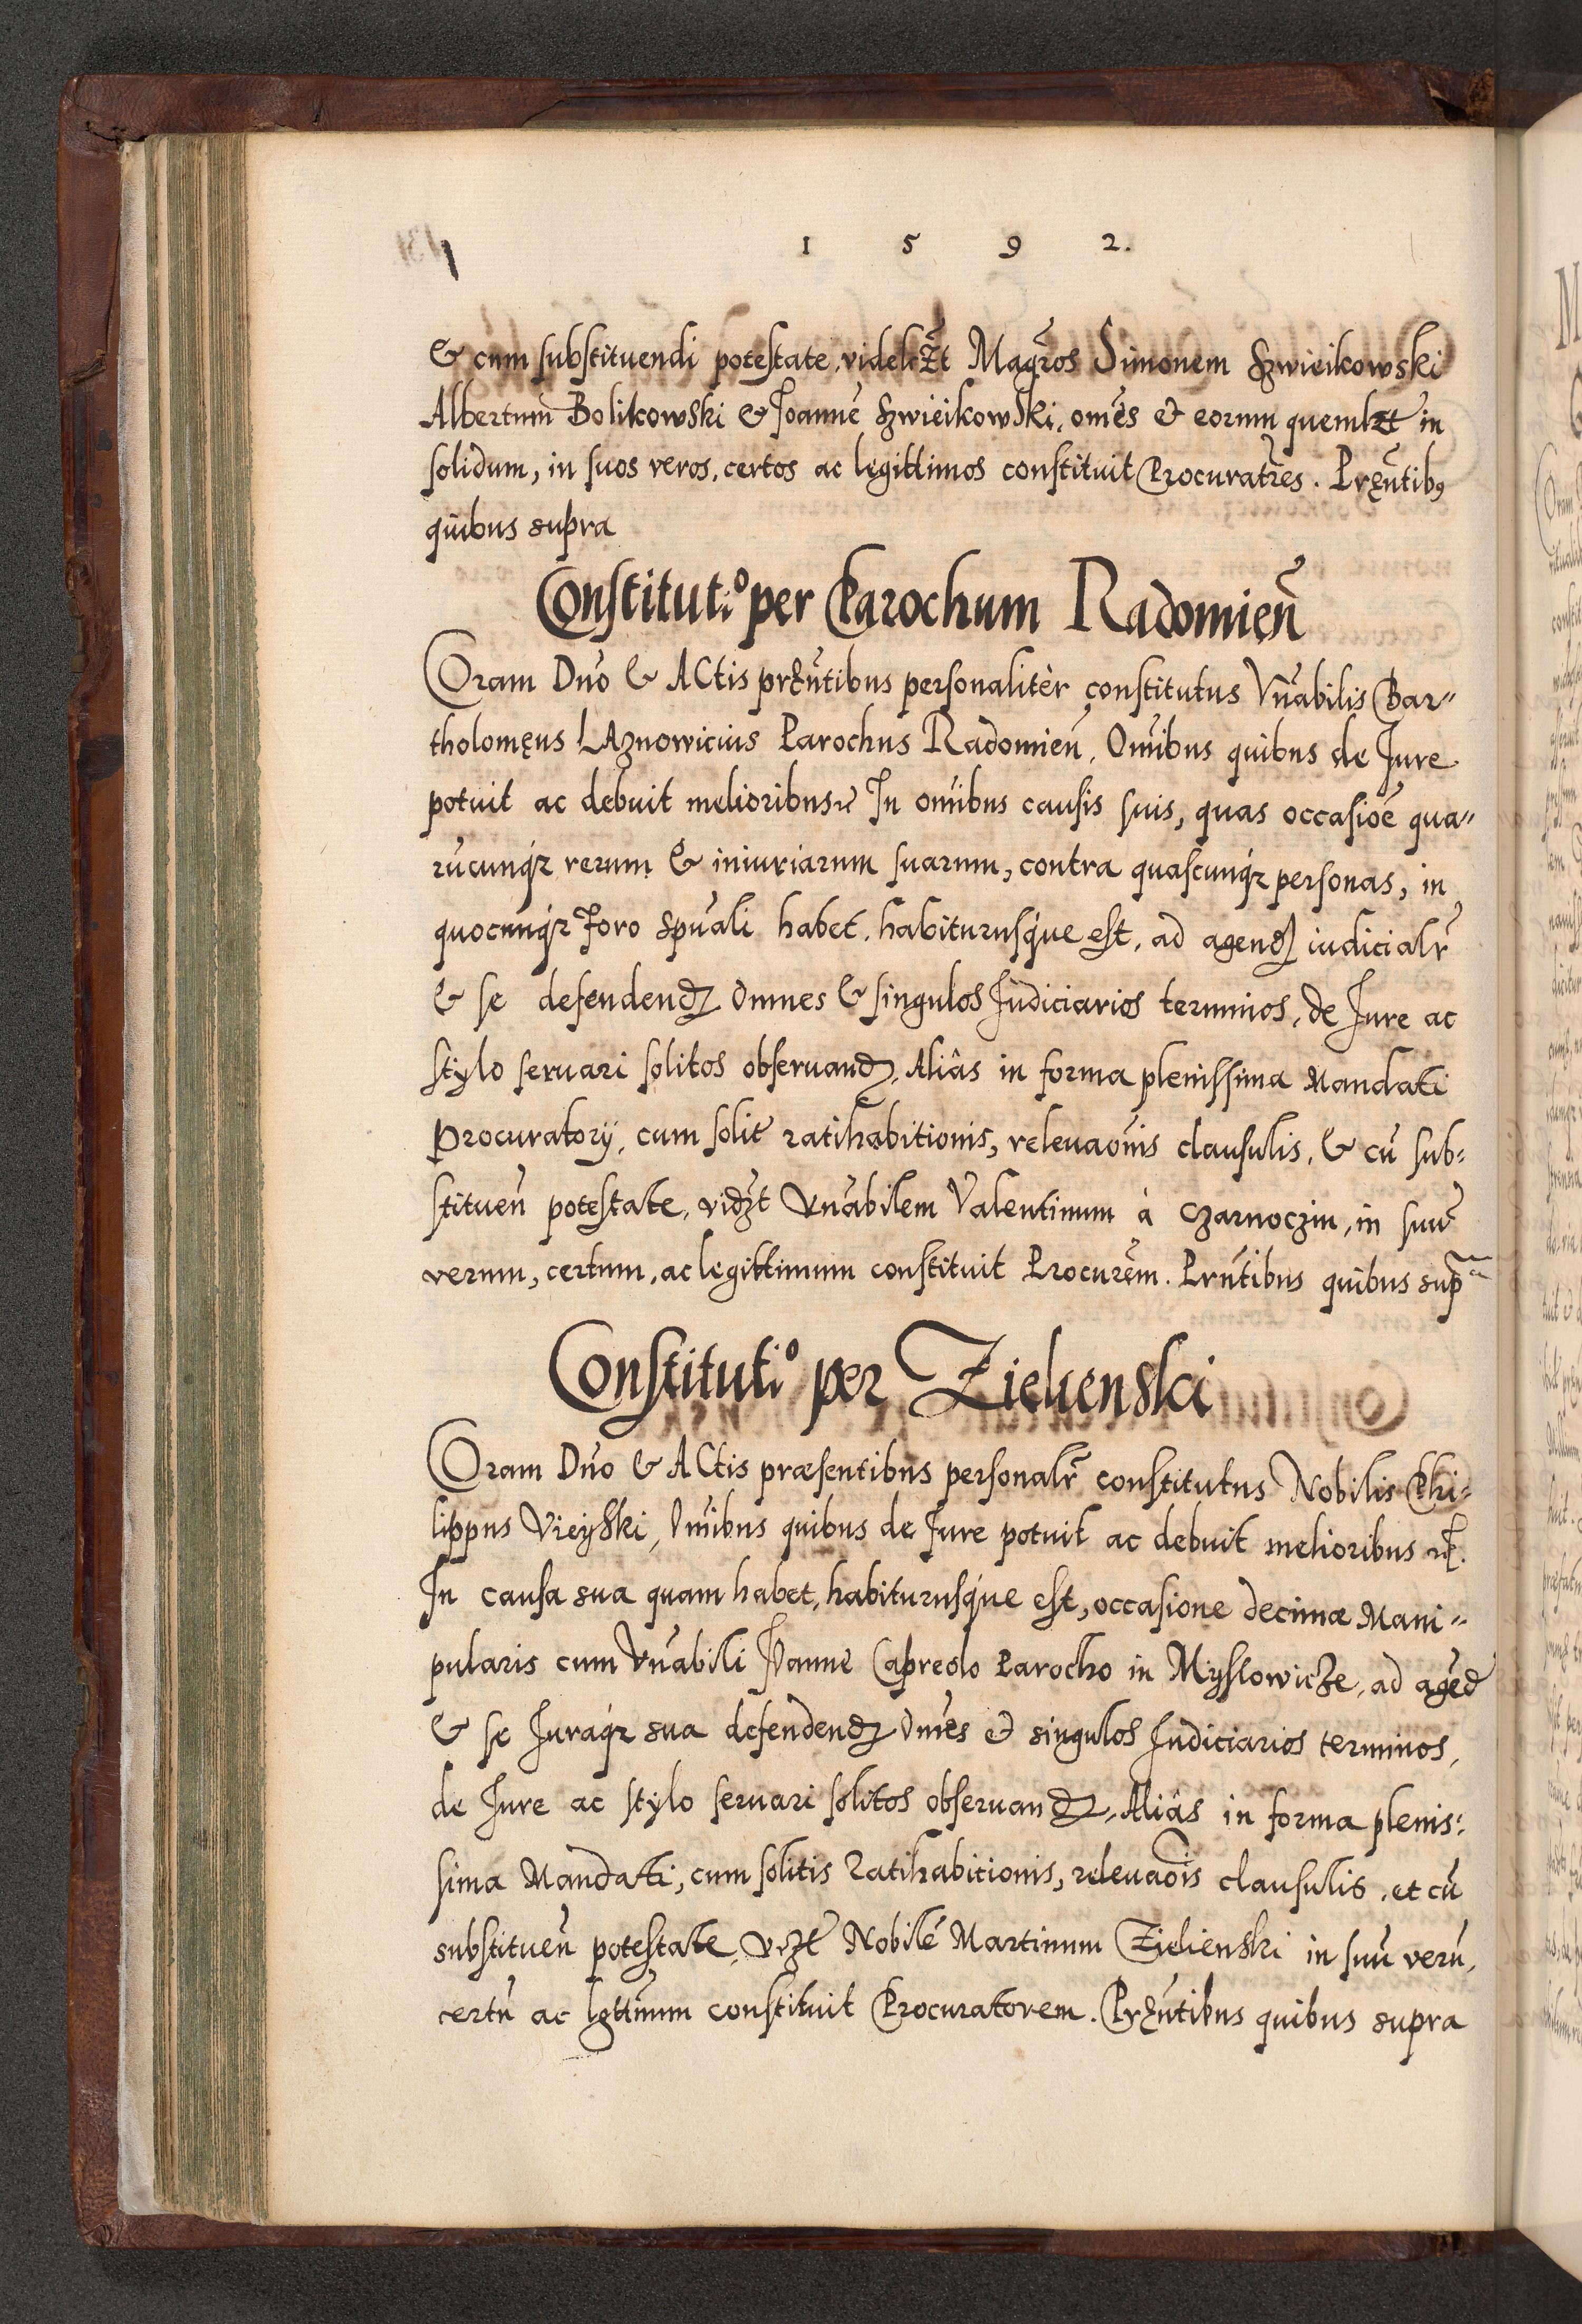 1 5 9 2.
& cum substituendi potestate, videlꝫt Magr̃os Simonem Szwieikowski
Albertum Bolikowski & Joannẽ Szwieikowski, om̃es et eorum quemlꝫt in
solidum, in suos veros, certos ac legittimos constituit Procurat̃res. Prꝫñtibꝰ
quibus supra
Constitut.º per Parochum Radomień
Coram Dño & ACtis prꝫñtibus personalitèr constitutus Vñabilis Bar„
tholomęus LAznowicius Parochus Radomieñ, Om̃ibus quibus de Jure
potuit ac debuit melioribus ꝛc̃ In om̃ibus causis suis, quas occasiõe qua„
rũcunqꝫ rerum & iniuriarum suarum, contra quascunqꝫ personas, in
quocunqꝫ foro spũali habet, habiturusq́ue est, ad agendꝫ iudicialr̃
& se defendendꝫ Omnes & singulos Judiciarios terminos, de Jure ac
stylo seruari solitos obseruandꝫ, Aliâs in forma plenissima Mandati
Procuratorij, cum solit̃ ratihabitionis, releuaõnis clausulis, & cũ sub:
stitueñ potestate, vidꝫt Vñabilem Valentinum à Czarnoczin, in suũ
verum, certum, ac legittimum constituit Procur̃em. Prñtibus quibus supᵃ
Constituti.º per Zielienski
Coram Dño & ACtis præsentibus personalr̃ constitutus Nobilis Phi:
lippus Vieyski, Om̃ibus quibus de Jure potuit ac debuit melioribus ꝛc̃.
In causa sua quam habet, habiturusq́ue est, occasione decimæ Mani„
pularis cum Vñabili Joanne Capreolo Parocho in Myslowicze, ad agẽd̃
& se Juraqꝫ sua defendendꝫ Om̃es et singulos Judiciarios terminos,
de Jure ac stylo seruari solitos obseruandꝫ, Aliâs in forma plenis:
sima Mandati, cum solitis Ratihabitionis, releuaõis clausulis, et cũ
substitueñ potestate, vꝫt Nobilẽ Martinum Zielienski in suũ verũ,
certũ ac lgttimum constituit Procuratorem. Prꝫñtibus quibus supra